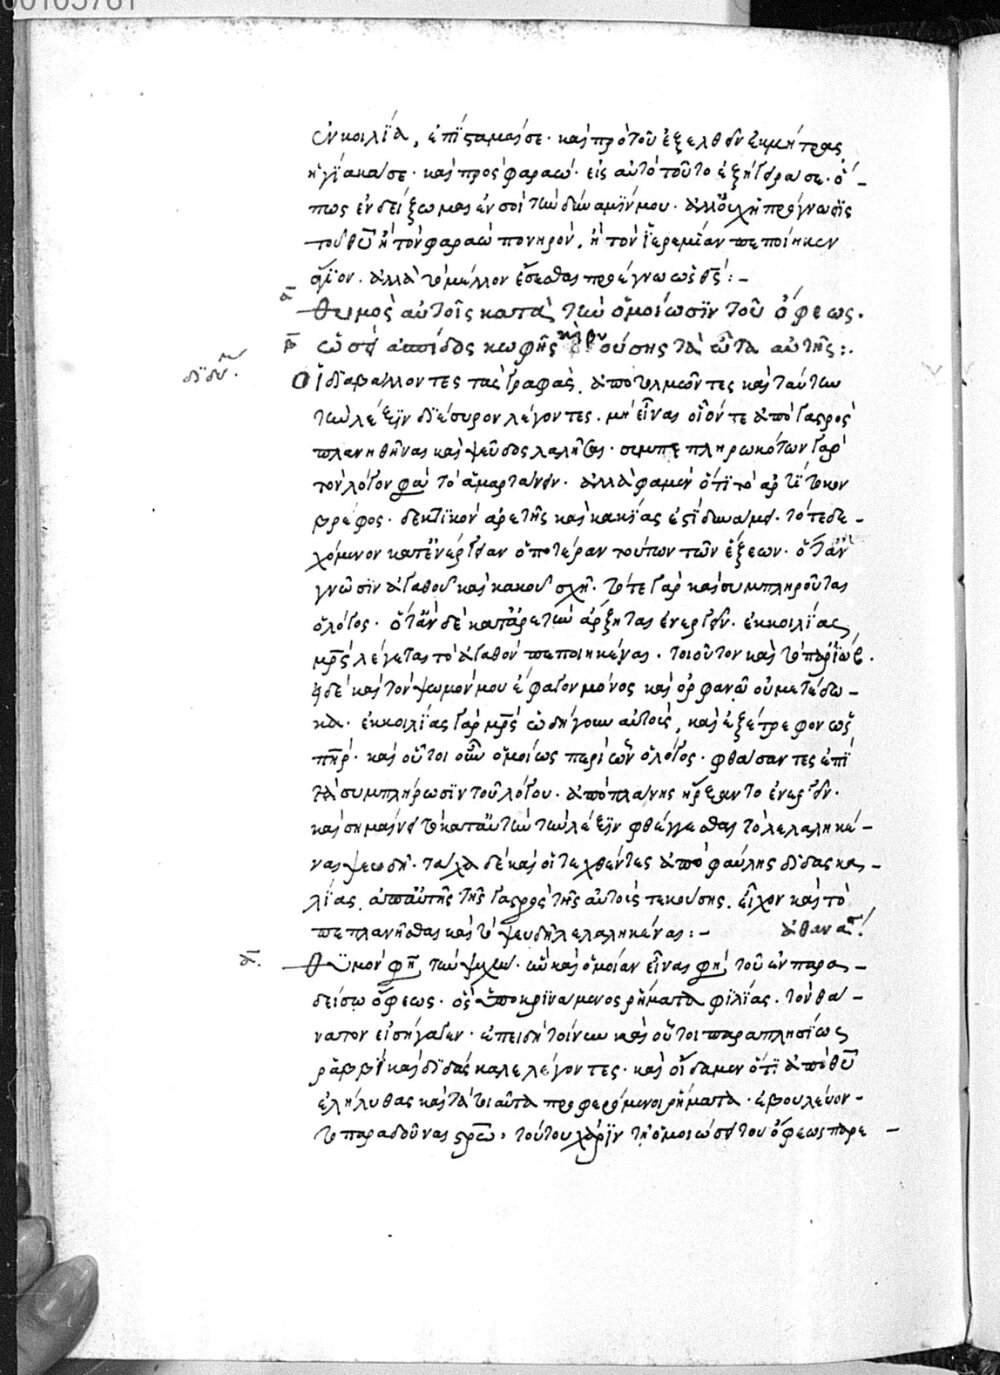 00103761
ἐν κοιλίᾳ, ἐπίσταμαί σε· καὶ πρὸ τοῦ ἐξελθεῖν ἐκ μήτρας
ἡγίακά σε· καὶ πρὸς φαραώ· εἰς αὐτὸ τοῦτο ἐξήγειρά σε· ὅ-
πως ἐνδείξωμαι ἐν σοὶ τὴν δύναμίν μου· ἀλλ' οὐχ ἡ πρόγνωσις
τοῦ θῦ ἢ τὸν φαραὼ πονηρὸν, ἢ τὸν ἱερεμίαν πεποίηκεν
ἅγιον· ἀλλὰ τὸ μέλλον ἔσεσθαι προέγνω ὡς θς:-
α θυμὸς αὐτοῖς κατὰ τὴν ὁμοίωσιν τοῦ ὄφεως.
β ὡσεὶ ἀσπίδος κωφῆς καὶ βυούσης τὰ ὦτα αὐτῆς:.
διδύμ. Οἱ διαβάλλοντες τὰς γραφὰς, ἀποτολμῶντες καὶ ταύτην
τὴν λέξιν διέσυρον λέγοντες· μὴ εἶναι οἷόν τε ἀπὸ γαστρὸς
πλανηθῆναι καὶ ψεῦδος λαλῆσαι· συμπεπληρωκότων γὰρ
τὸν λόγον φασὶ τὸ ἁμαρτάνειν· ἀλλὰ φαμὲν ὅτι τὸ ἀρτίτοκον
βρέφος· δεκτικὸν ἀρετῆς καὶ κακίας ἐστὶ δυνάμει· τότε δε-
χόμενον κατ' ἐνέργειαν ὁποτέραν τούτων τῶν ἕξεων· ὅταν
γνῶσιν ἀγαθοῦ καὶ κακοῦ σχῇ· τότε γὰρ καὶ συμπληροῦται
ὁ λόγος· ὅταν δὲ κατ' ἀρετὴν ἄρξηται ἐνεργεῖν· ἐκ κοιλίας
μρς λέγεται τὸ ἀγαθὸν πεποιηκέναι· τοιοῦτον καὶ τὸ παρ' ἰώβ·
εἰ δὲ καὶ τὸν ψωμόν μου ἔφαγον μόνος καὶ ὀρφανῷ οὐ μετέδω-
κα· ἐκ κοιλίας γὰρ μρς ὡδήγουν αὐτοὺς, καὶ ἐξέτρεφον ὡς
πηρ· καὶ οὗτοι οὖν ὁμοίως περὶ ὧν ὁ λόγος· φθάσαντες ἐπὶ
τὴν συμπλήρωσιν τοῦ λόγου· ἀπὸ πλάνης ἤρξαντο ἐνεργεῖν·
καὶ σημαίνει τὸ κατ' αὐτὴν τὴν λέξιν φθέγγεσθαι τὸ λελαληκέ-
ναι ψευδῆ· τάχα δὲ καὶ οἱ τεχθέντες ἀπὸ φαύλης διδασκα-
λίας, ἀπ' αὐτῆς τῆς γαστρὸς τῆς αὐτοὺς τεκούσης, εἶχον καὶ τὸ
πεπλανῆσθαι καὶ τὸ ψευδῆ λελαληκέναι:- ἀθανασ.
α. Θυμόν φη τὴν ψυχὴν· ἣν καὶ ὁμοίαν εἶναι φη τοῦ ἐν παρα-
δείσῳ ὄφεως· ὃς ὑποκρινάμενος ῥήματα φιλίας· τὸν θά-
νατον εἰσήγαγεν· ἐπειδὴ τοίνυν καὶ οὗτοι παραπλησίως
ῥαββὶ καὶ διδάσκαλε λέγοντες· καὶ οἴδαμεν ὅτι ἀπὸ θῦ
ἐλήλυθας καὶ τὰ τοιαῦτα προφερόμενοι ῥήματα· ἐβουλεύον-
το παραδοῦναι στρῶ, τούτου χάριν τῇ ὁμοιώσει τοῦ ὄφεως παρε-